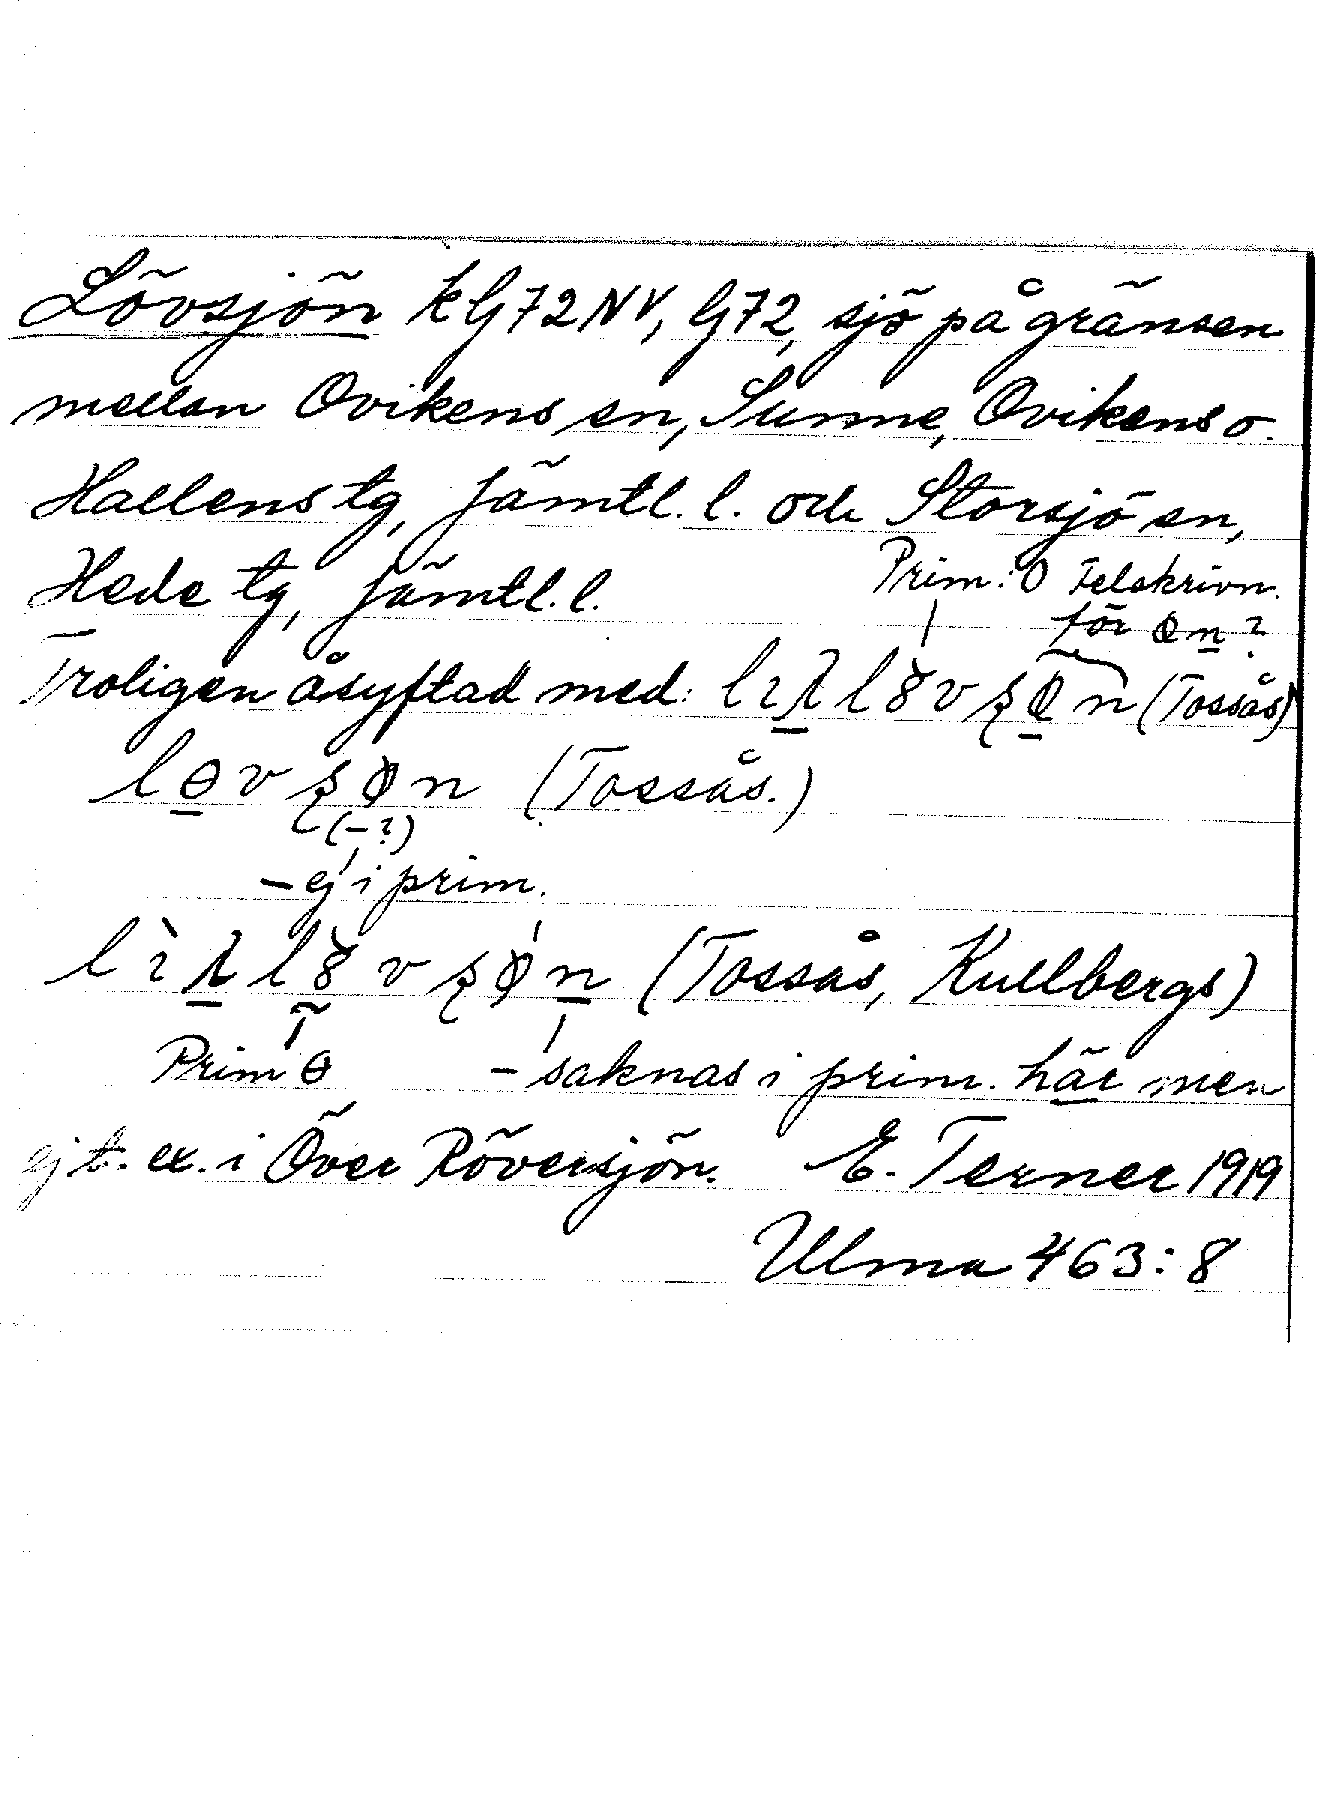 Lövsjön kG72NV, G72, sjö på gränsen
mellan Ovikens sn, Sunne, Ovikens o.
Hallens tg, Jämtl. l. och Storsjö sn,
Hede tg, Jämtl. l. Prim: O Felskrivn.
för ꞝn?
Troligen åsyftad med: lıλlȣvʂꞝn (Tossås)
lɵvʂφn (Tossås.)
(-?)
- ej i prim.
lìλlȣ̀vʂφn (Tossås, Kullbergs)
Prim ɵ - saknas i prim. här men
ej t. ex. i Över Röversjön. E. Terner 1919
Ulma 463:8